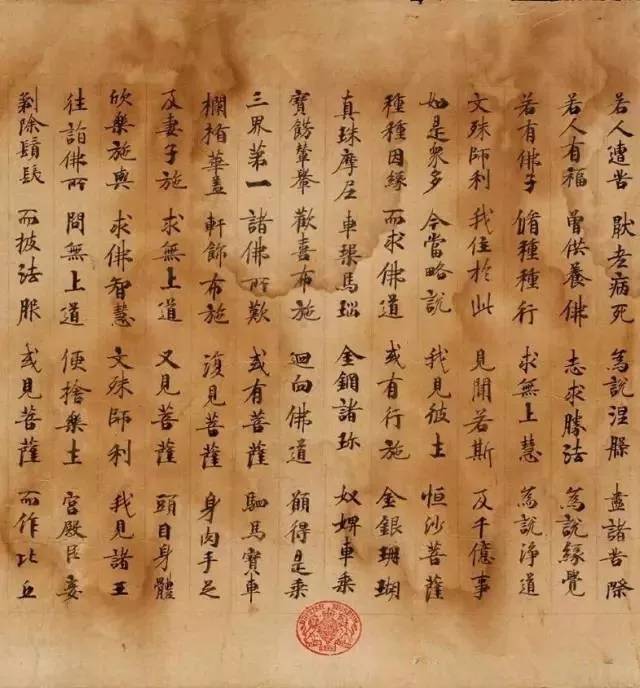 若人遭苦 猒老病死 為說涅槃 盡諸苦際
若人有福 曾供養佛 志求勝法 為說緣覺
若有佛子 脩種種行 求無上慧 為說淨道
文殊師利 我住於此 見聞若斯 及千億事
如是眾多 今當略說 我見彼土 恒沙菩薩
種種因緣 而求佛道 或有行施 金銀珊瑚
真珠摩尼 車璖馬瑙 金剛諸珍 奴婢車乘
寶飾輦轝 歡喜布施 迴向佛道 願得是乘
三界第一 諸佛所歎 或有菩薩 駟馬寶車
欄楯華蓋 軒飾布施 復見菩薩 身肉手足
及妻子施 求無上道 又見菩薩 頭目身體
欣樂施與 求佛智慧 文殊師利 我見諸王
往詣佛所 問無上道 便捨樂土 宮殿臣妾
剃除鬚髮 而披法服 或見菩薩 而作比丘